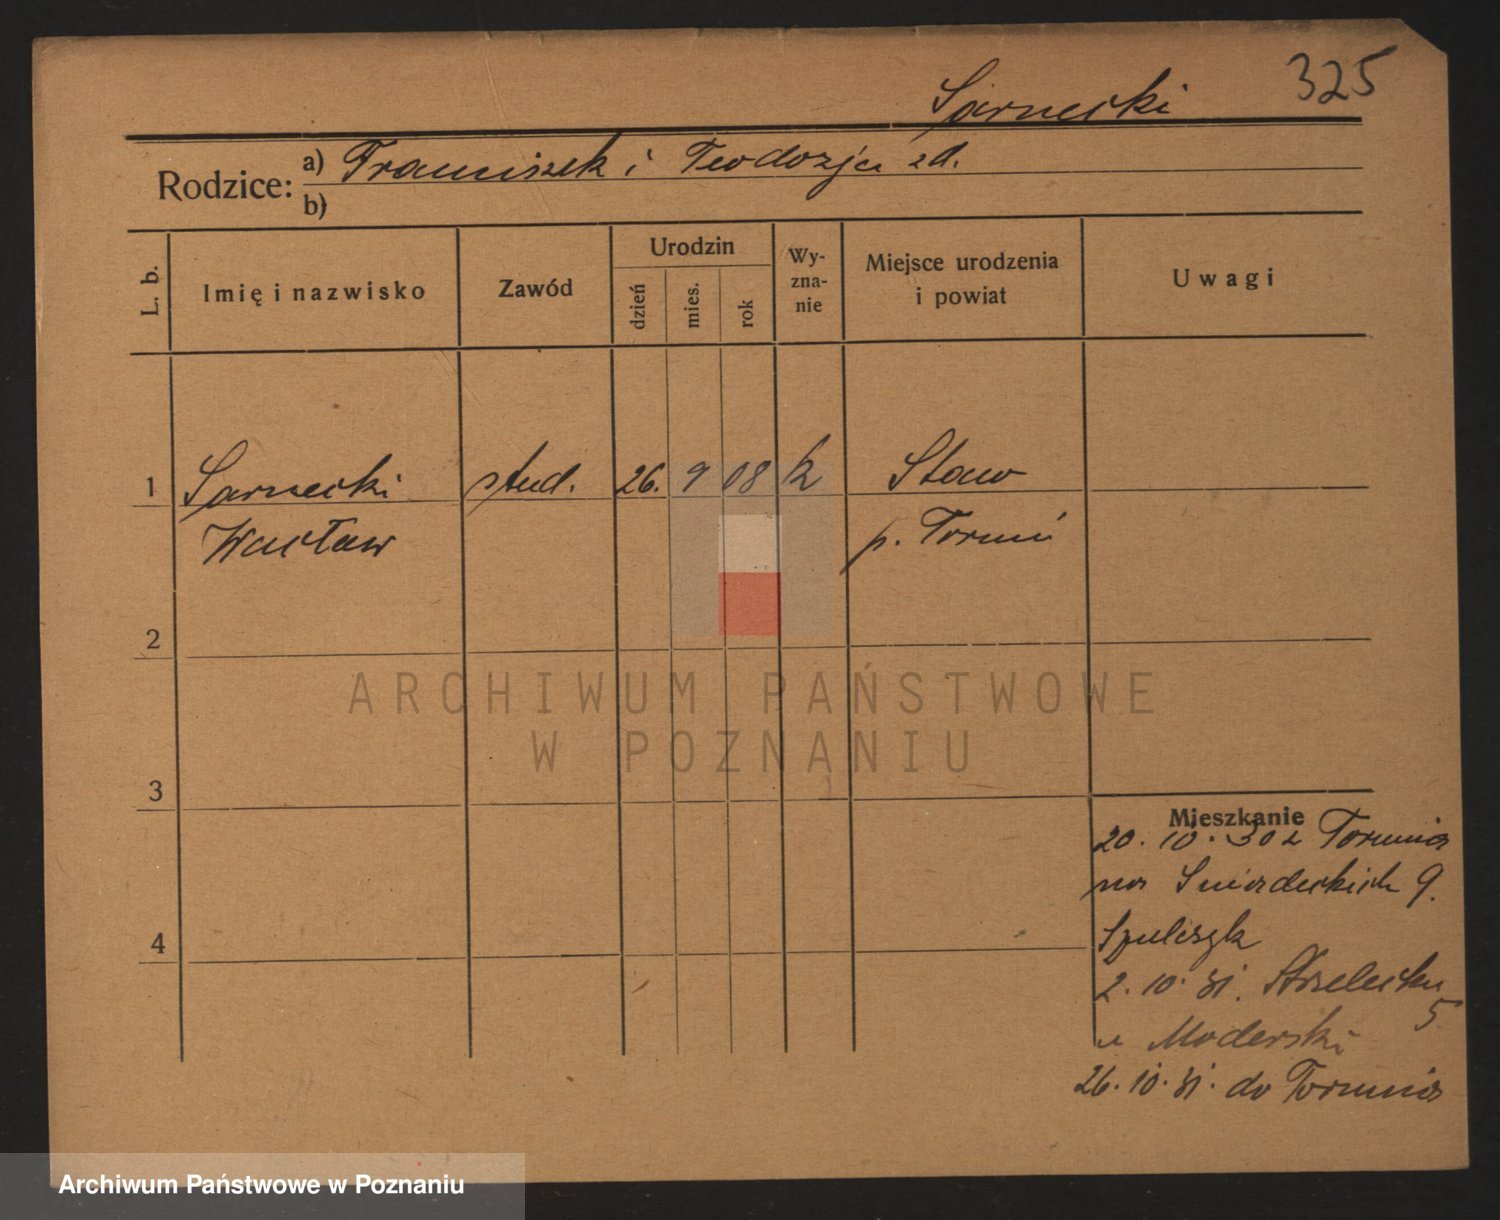 325
Sarnecki
Rodzice: a) Franciszek i Teodozja zd.
b)
L. b.
Imię i nazwisko
Zawód
Urodzin
dzień
mies.
rok
Wy-
zna-
nie
Miejsce urodzenia
i powiat
Uwagi
1 Sarnecki stud. 26. 9 08 k Staw
Wacław p. Toruń
2
3
4
Mieszkanie
20. 10. 30 z Torunia
na Śniadeckich 9.
Szulczyk
2. 10. 31. Strzelecka
5
u Moderski
26. 10. 31. do Torunia
ARCHIWUM PAŃSTWOWE
W POZNANIU
Archiwum Państwowe w Poznaniu